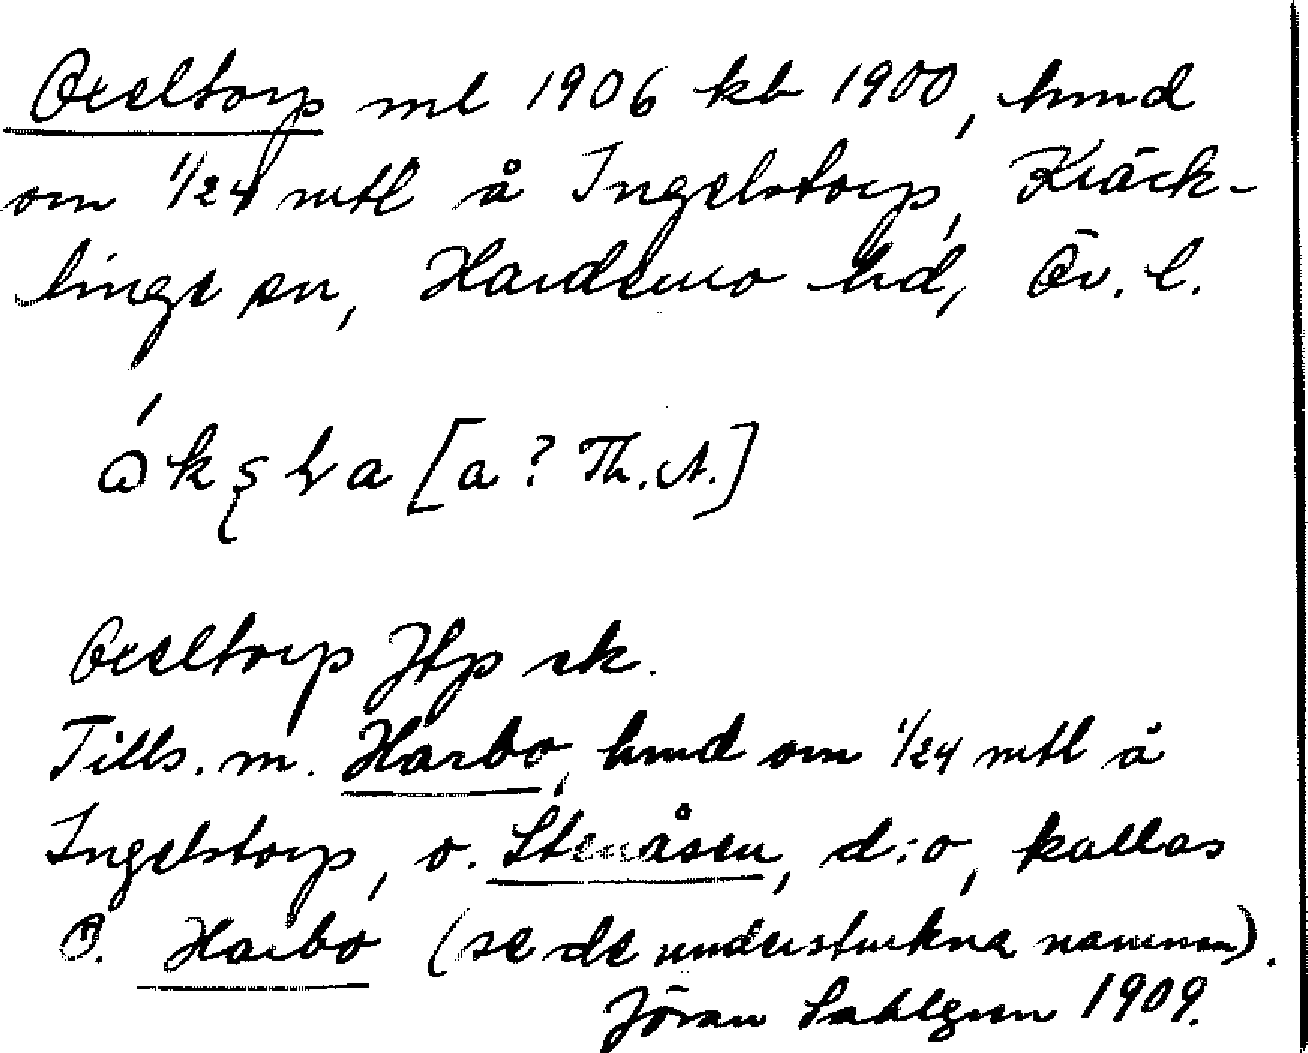 Oxeltorp ml 1906 kb 1900, hmd
om 1/24 mtl å Ingelstorp, Kräck-
linge sn, Hardemo hd, Ör. l.
[a? Th. A.]
Oxeltorp Jtp sk.
Tills. m. Harbo, hmd om 1/24 mtl å
Ingelstorp, o. Stenåsen, d:o, kallas
Ö. Harbo (se de understrukna namnen).
Jöran Sahlgren 1909.